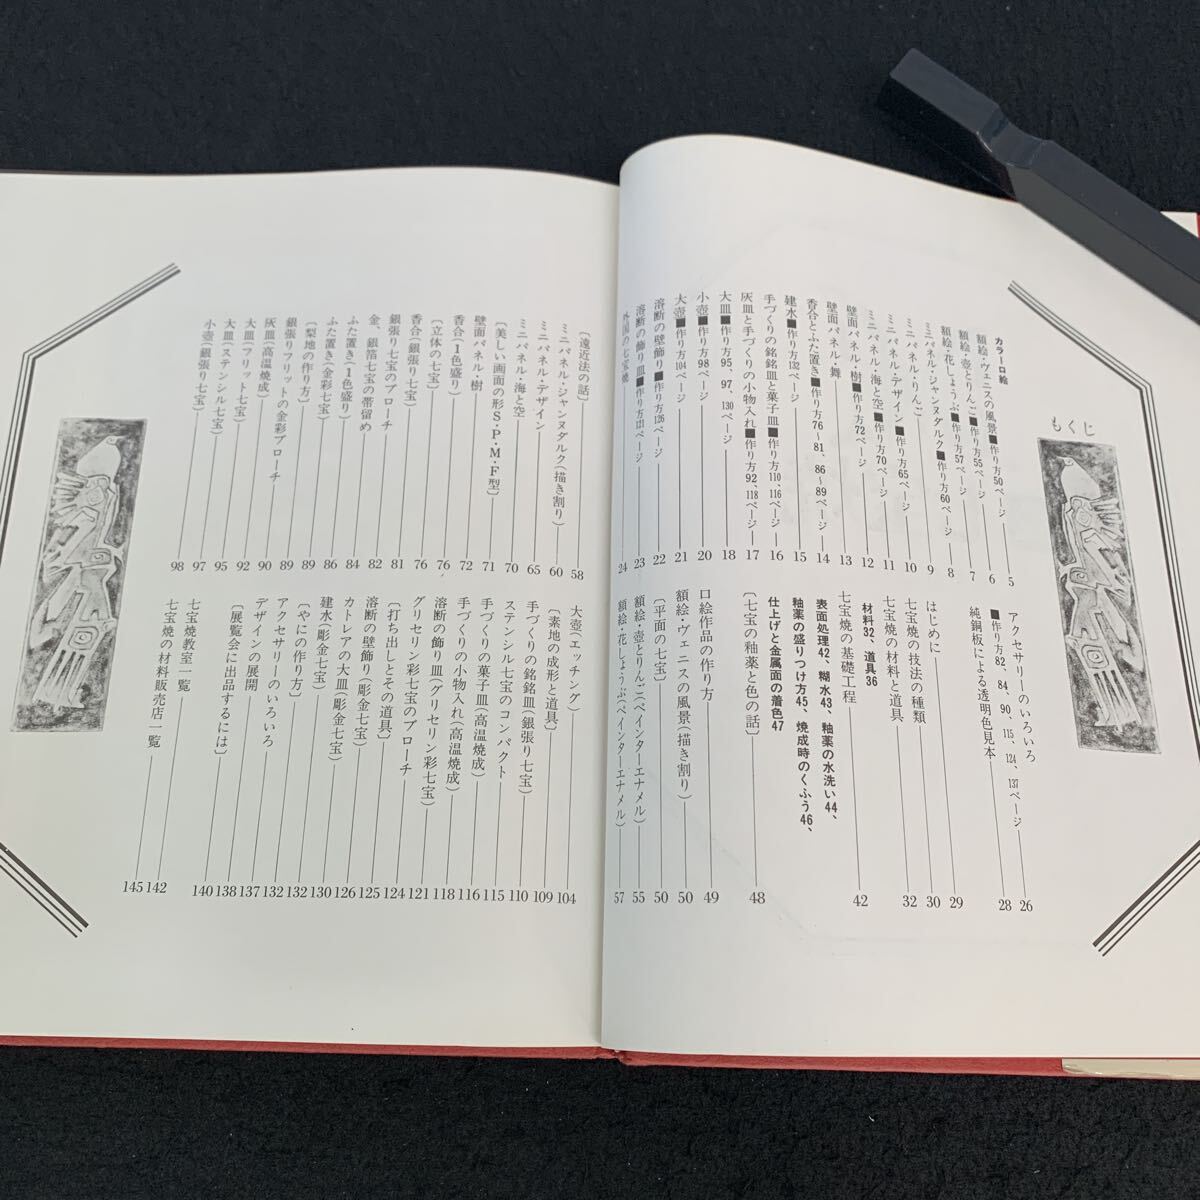 もくじ
カラー口絵
額絵・ヴェニスの風景■作り方50ページ 5
額絵・壺とりんご■作り方55ページ 6
額絵・花しょうぶ■作り方57ページ 7
ミニパネル・ジャンヌダルク■作り方60ページ 8
ミニパネル・りんご 9
ミニパネル・デザイン■作り方65ページ 10
ミニパネル・海と空■作り方70ページ 11
壁面パネル・樹■作り方72ページ 12
壁面パネル・舞 13
香合とふた置き■作り方76〜81、86〜89ページ 14
建水■作り方132ページ 15
手づくりの銘銘皿と菓子皿■作り方110、116ページ 16
灰皿と手づくりの小物入れ■作り方92、118ページ 17
大皿■作り方95、97、130ページ 18
小壺■作り方98ページ 20
大壺■作り方104ページ 21
溶断の壁飾り■作り方126ページ 22
溶断の飾り皿■作り方121ページ 23
外国の七宝焼 24
アクセサリーのいろいろ 26
■作り方82、84、90、115、124、137ページ
純銅板による透明色見本 28
はじめに 29
七宝焼の技法の種類 30
七宝焼の材料と道具 32
材料32、道具36
七宝焼の基礎工程 42
表面処理42、糊水43、釉薬の水洗い44、
釉薬の盛りつけ方45、焼成時のくふう46、
仕上げと金属面の着色47
〔七宝の釉薬と色の話〕 48
口絵作品の作り方 49
額絵・ヴェニスの風景(描き割り) 50
〔平面の七宝〕 50
額絵・壺とりんご(ペインターエナメル) 55
額絵・花しょうぶ(ペインターエナメル) 57
〔遠近法の話〕 58
ミニパネル・ジャンヌダルク(描き割り) 60
ミニパネル・デザイン 65
ミニパネル・海と空 70
〔美しい画面の形S・P・M・F型〕 71
壁面パネル・樹 72
香合(1色盛り) 76
〔立体の七宝〕 76
香合(銀張り七宝) 81
銀張り七宝のブローチ 82
金、銀箔七宝の帯留め 84
ふた置き(1色盛り) 86
ふた置き(金彩七宝) 89
〔梨地の作り方〕 89
銀張りフリットの金彩ブローチ 90
灰皿(高温焼成) 92
大皿(フリット七宝) 95
大皿(ステンシル七宝) 97
小壺(銀張り七宝) 98
大壺(エッチング) 104
〔素地の成形と道具〕 109
手づくりの銘銘皿(銀張り七宝) 110
ステンシル七宝のコンパクト 115
手づくりの菓子皿(高温焼成) 116
手づくりの小物入れ(高温焼成) 118
溶断の飾り皿(グリセリン彩七宝) 121
グリセリン彩七宝のブローチ 124
〔打ち出しとその道具〕 125
溶断の壁飾り(彫金七宝) 126
カトレアの大皿(彫金七宝) 130
建水(彫金七宝) 132
〔やにの作り方〕 132
アクセサリーのいろいろ 137
デザインの展開 138
〔展覧会に出品するには〕 140
七宝焼教室一覧 142
七宝焼の材料販売店一覧 145